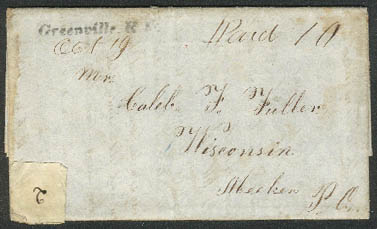 Greenville. R
Oct 19
Paid 10
Mr.
Caleb F. Fuller
Wisconsin
Meeker P. O.
2